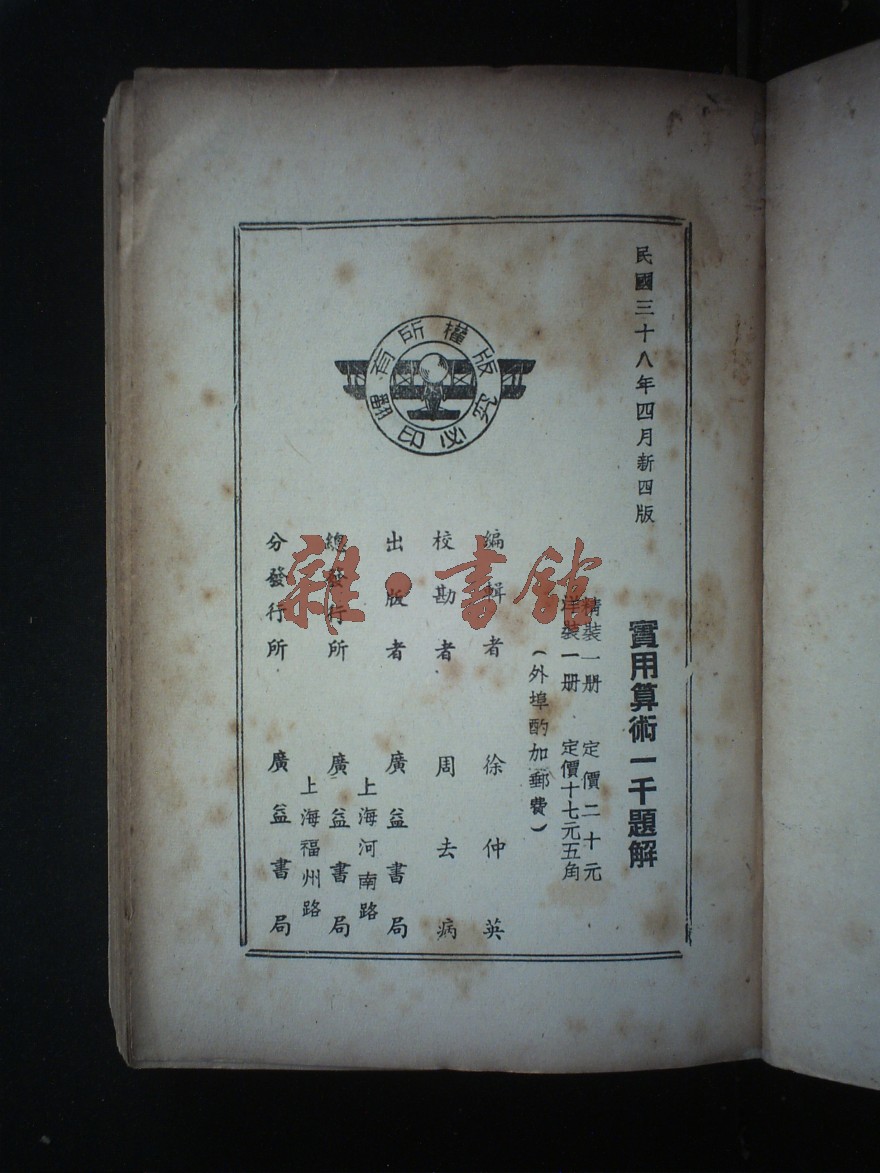 民國三十八年四月新四版
實用算術一千題解
精裝一册 定價二十元
洋裝一册 定價十七元五角
(外埠酌加郵費)
編輯者 徐仲英
校勘者 周去病
出版者 廣益書局
上海河南路
總發行所 廣益書局
上海福州路
分發行所 廣益書局
版權所有
翻印必究
雜·書館